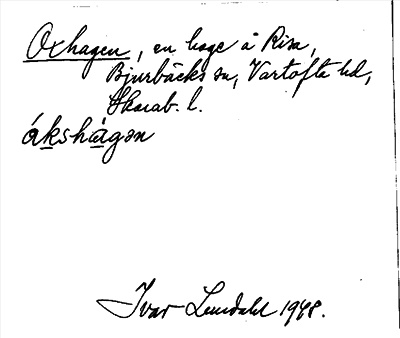 Oxhagen, en hage å Risa,
Bjurbäcks sn, Vartofta hd,
Skarab. l.
ákshàgən
Ivar Lundahl 1948.